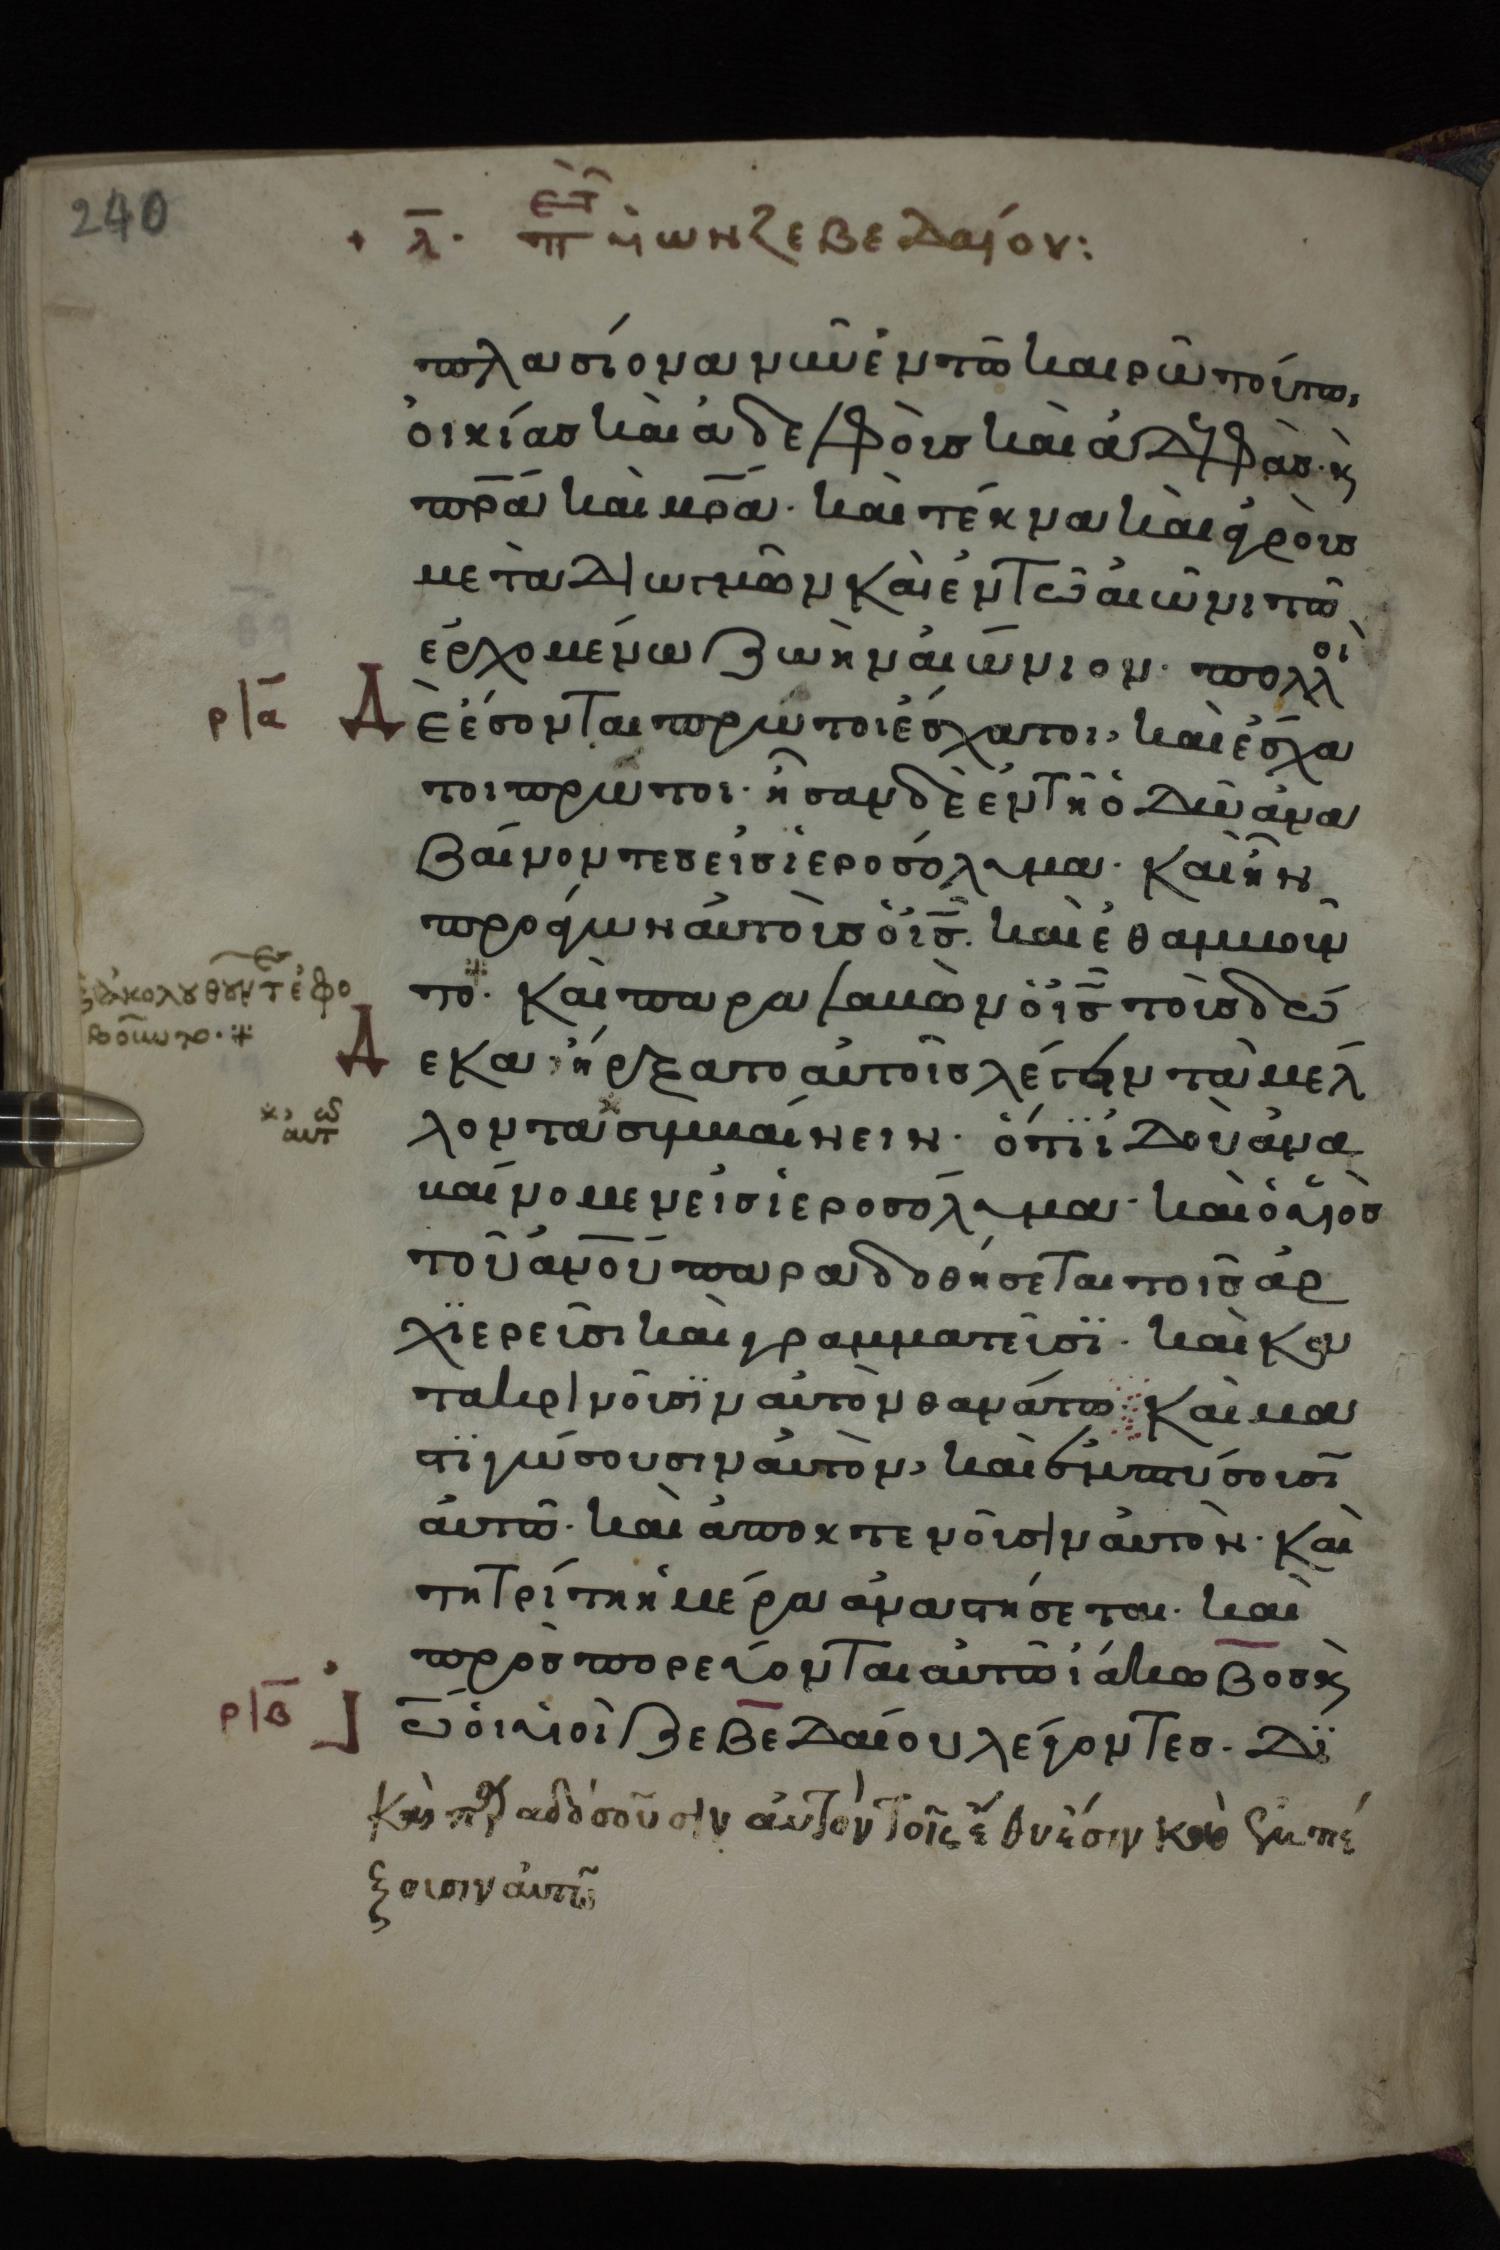 240
+ λ. περὶ τῶν υἱῶν ζεβεδαίου:
πλασίονα νῦν ἐν τῶ καιρῶ τούτω,
οἰκίας καὶ ἀδελφοὺς καὶ ἀδελφὰς. κ
πρα καὶ μρα. καὶ τέκνα καὶ ἀγροὺς
μετὰ διωγμῶν καὶ ἐν τῶ αἰῶνι τῶ
ἐρχομένω ζωὴν αἰώνιον. πολλοὶ
ρια Δὲ ἔσονται πρῶτοι ἔσχατοι, καὶ ἔσχα
τοι πρῶτοι. ἦσαν δὲ ἐν τῆ ὁδῶ ἀνα
βαίνοντες εἰς ἱεροσόλυμα. καὶ ἦν
προάγων αὐτοὺς ὁ ις. καὶ ἐθαμβοῦν
το. καὶ παραλαβὼν ὁ ις τοὺς δώ
καὶ ἀκολουθοῦντες ἐφο
βοῦντο.
Δεκα ἤρξατο αὐτοῖς λέγειν τὰ μέλ
λοντα συμβαίνειν. ὅτι ἰδοὺ ἀνα
αυτ
βαίνομεν εἰς ἱεροσόλυμα. καὶ ὁ υἱὸς
τοῦ ανου παραδοθήσεται τοῖς ἀρ
χϊερεῦσι καὶ γραμματεῦσϊ. καὶ κα
τακρινοῦσϊν αὐτὸν θανάτω. καὶ μα
στϊγώσουσιν αὐτὸν, καὶ ἐμπτύσουσι
αὐτῶ. καὶ ἀποκτενοῦσιν αὐτὸν. καὶ
τη τρίτη ἡμέρα ἀναστήσεται. καὶ
προσπορεύονται αὐτῶ ἰάκωβος κ
ριβ Ἰω οἱ υἱοὶ ζεβεδαίου λέγοντες. Δϊ
καὶ παραδόσουσιν αὐτὸν τοῖς ἔθνεσιν καὶ ἐμπέ
ξουσιν αὐτῶ